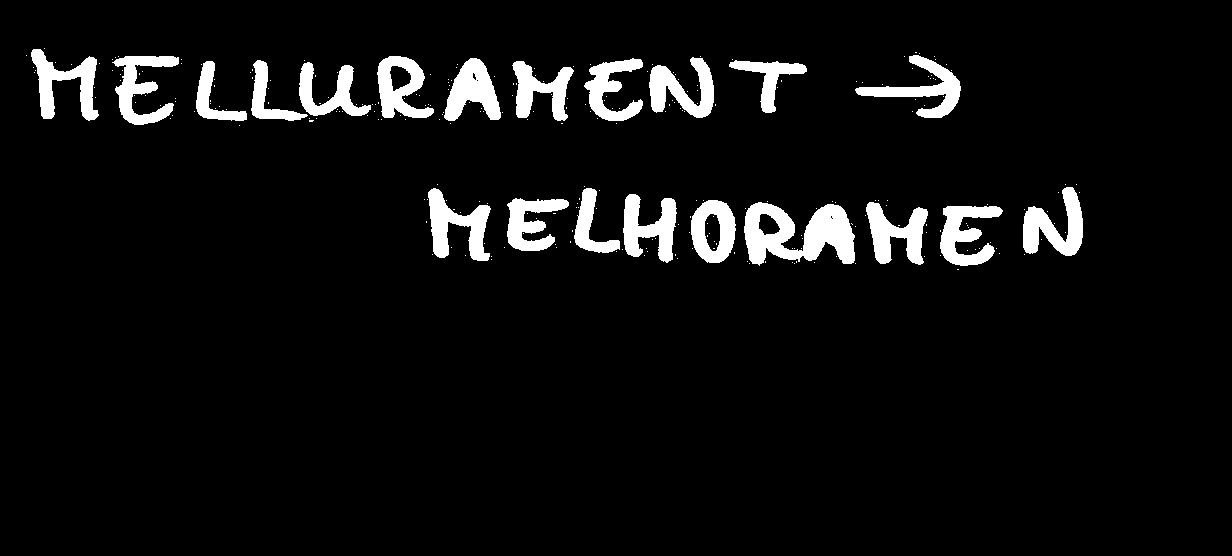 MELLURAMENT →
MELHORAMEN